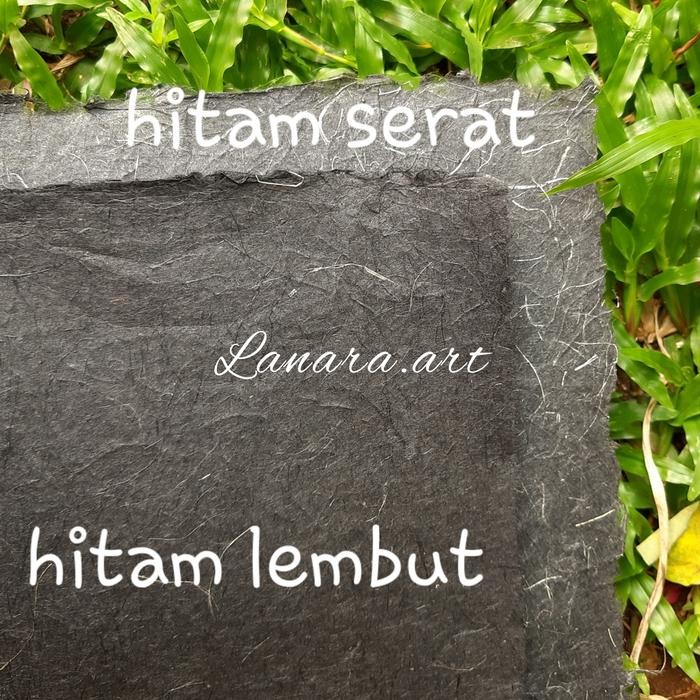 hitam serat
Lanara.art
hitam lembut